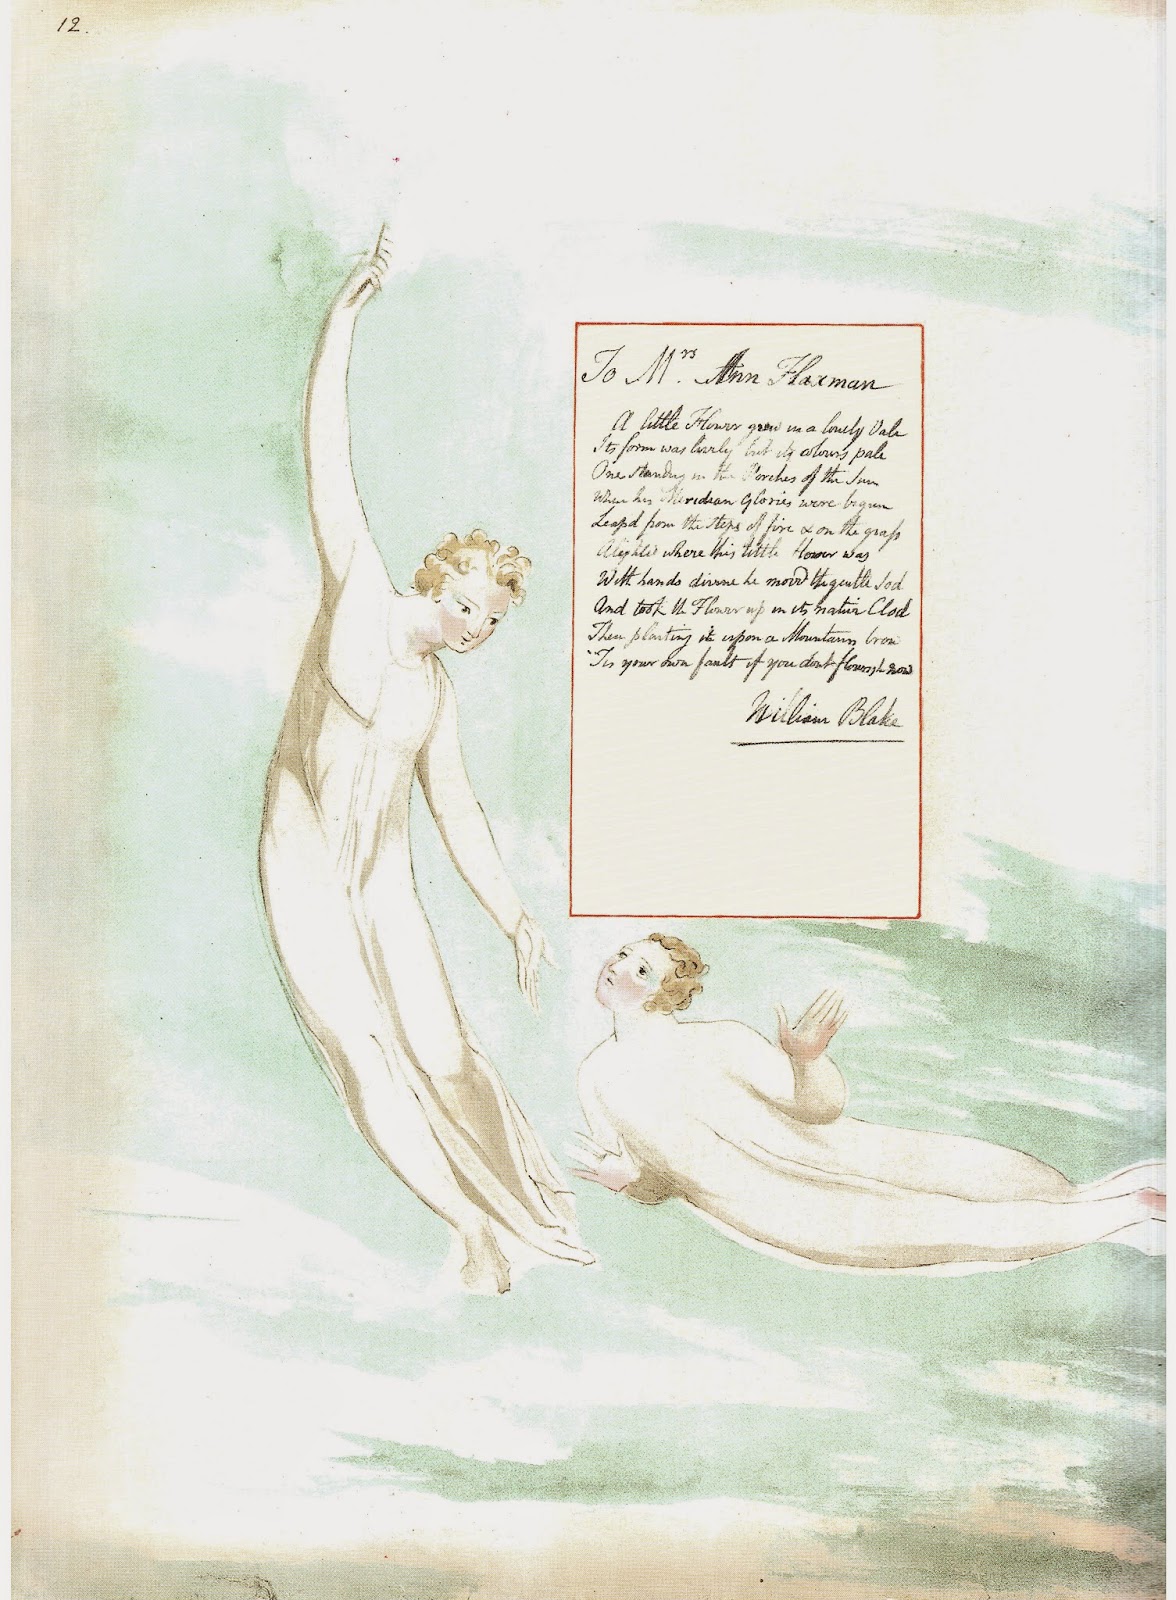 12.
To Mrs. Ann Flaxman
A little Flower grew in a lonely Vale
Its form was lovely but its colours pale
One standing in the Porches of the Sun
When his Meridian Glories were begun
Leapd from the steps of fire & on the grass
Alighted where this little Flower was
With hands divine he movd the gentle Sod
And took the Flower up in its native Clod
Then planting it upon a Mountains brow
'Tis your own fault if you dont flourish now
William Blake